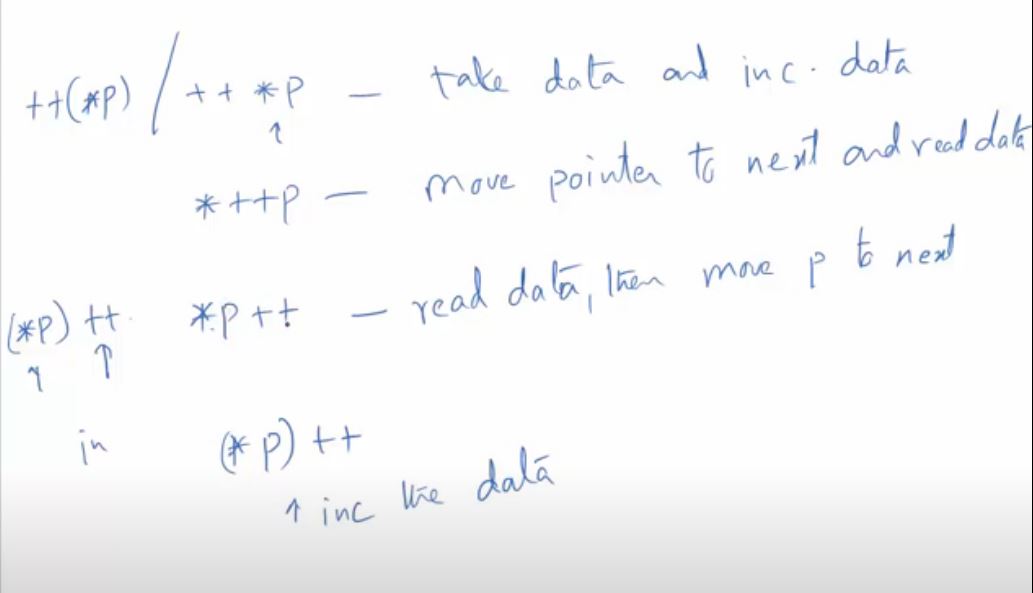 ++(*p) / ++ *p – take data and inc. data
*++p – move pointer to next and read data
(*p) ++ *p++ – read data, then move p to next
in (*p) ++
↑ inc the data